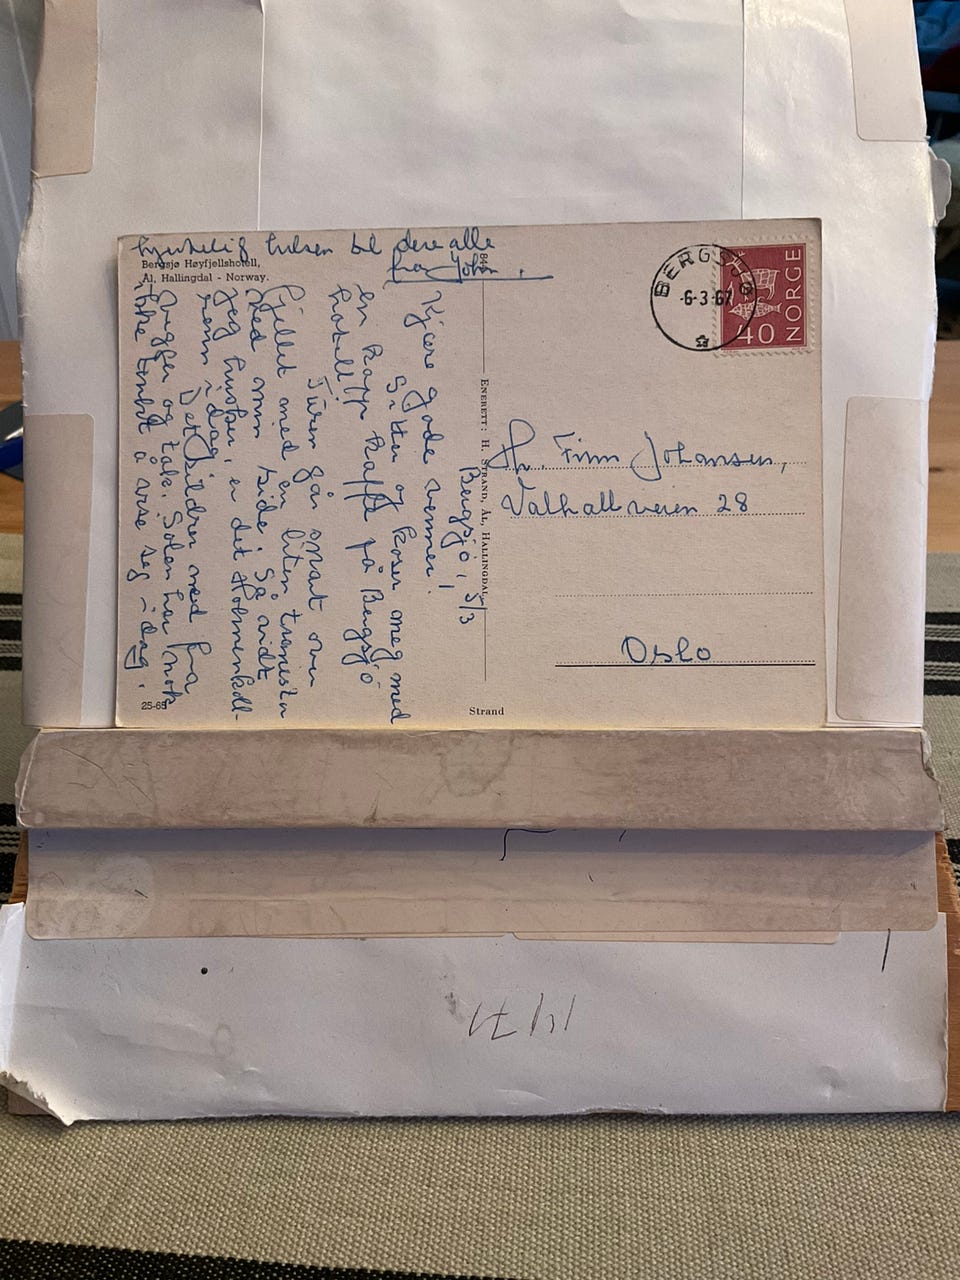 Bergsjø Høyfjellshotell,
Ål, Hallingdal - Norway.
Bergsjø, 5/3
Kjære gode venner!
Sitter og koser meg med
en kopp kaffe på Bergsjø
hotell!
Turen går snart over
fjellet med en liten
med min side. Så vidt
jeg husker, er det Holmenkoll-
renn i dag.
Det med fra
og tak. Solen har nok
ikke tenkt å vise seg i dag.
hjertelig hilsen til dere alle
fra John.
ENERETT: H. STRAND, ÅL, HALLINGDAL
25-65
Strand
BERGSJØ
-6-3-67
NORGE
40
Hr. Finn Johansen,
Valhallveien 28
Oslo